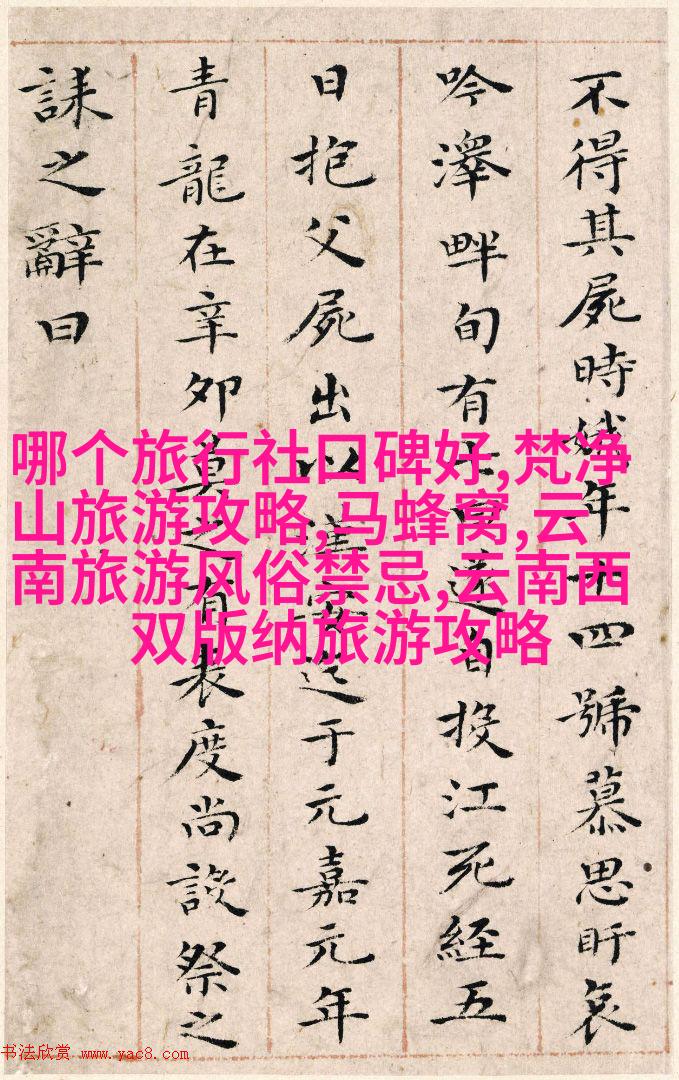 不得其屍時娥年十四號慕思盱哀
吟澤畔旬有七日遂自投江死經五
日抱父屍出以漢安迄于元嘉元年
青龍在辛卯莫之有表度尚設祭之
誄之辭曰
哪个旅行社口碑好,梵净
山旅游攻略,马蜂窝,云
南旅游风俗禁忌,云南西
双版纳旅游攻略
书法欣赏 www.yac8.com